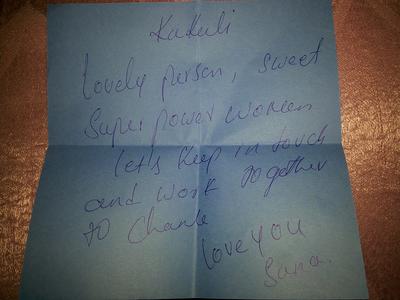 Kakuli
Lovely person, sweet
Super power women
let's keep in touch
and work together
to Chanle
love you
Sana.